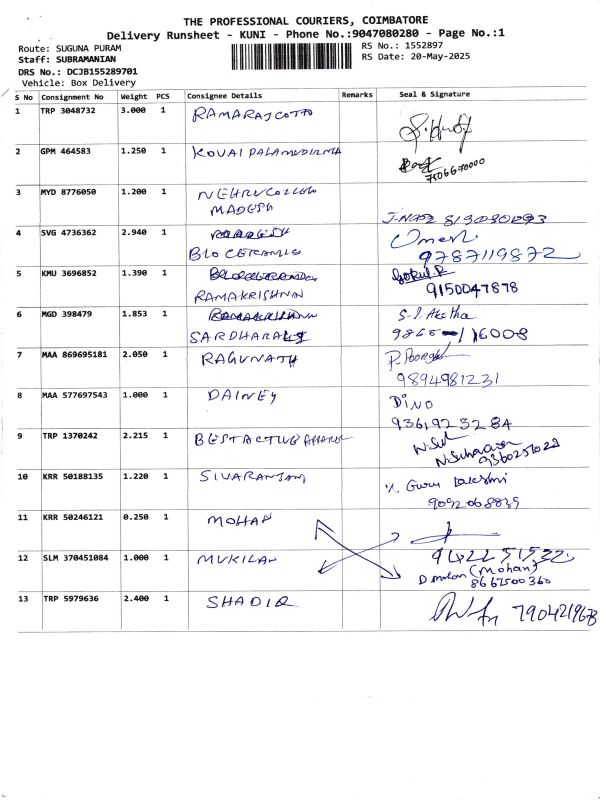 THE PROFESSIONAL COURIERS, COIMBATORE
Delivery Runsheet - KUNI - Phone No.:9047080280 - Page No.:1
Route: SUGUNA PURAM
RS No.: 1552897
Staff: SUBRAMANIAN
RS Date: 20-May-2025
DRS No.: DCJB155289701
Vehicle: Box Delivery
S No Consignment No Weight PCS Consignee Details Remarks Seal & Signature
1 TRP 3048732 3.000 1 RAMARAJCOTTO
2 GPM 464583 1.250 1 KOVAI
7506670000
3 MYD 8776050 1.200 1 NEHRUCOLLEGE
MADESH
4 SVG 4736362 2.940 1
BIO CERAMIC
9787119872
5 KMU 3696852 1.390 1 Gokul.R
RAMAKRISHNAN 9150047878
6 MGD 398479 1.853 1
7 MAA 869695181 2.050 1 RAGUNATH
9894981231
8 MAA 577697543 1.000 1 DAINEY DINO
9 TRP 1370242 2.215 1
10 KRR 50188135 1.220 1 SIVARANJANI
Guru Lakshmi
9092068839
11 KRR 50246121 0.250 1 MOHAN
12 SLM 370451084 1.000 1 MUKILAN
(Mohan)
8667500360
13 TRP 5979636 2.400 1 SHADIQ
7904219673